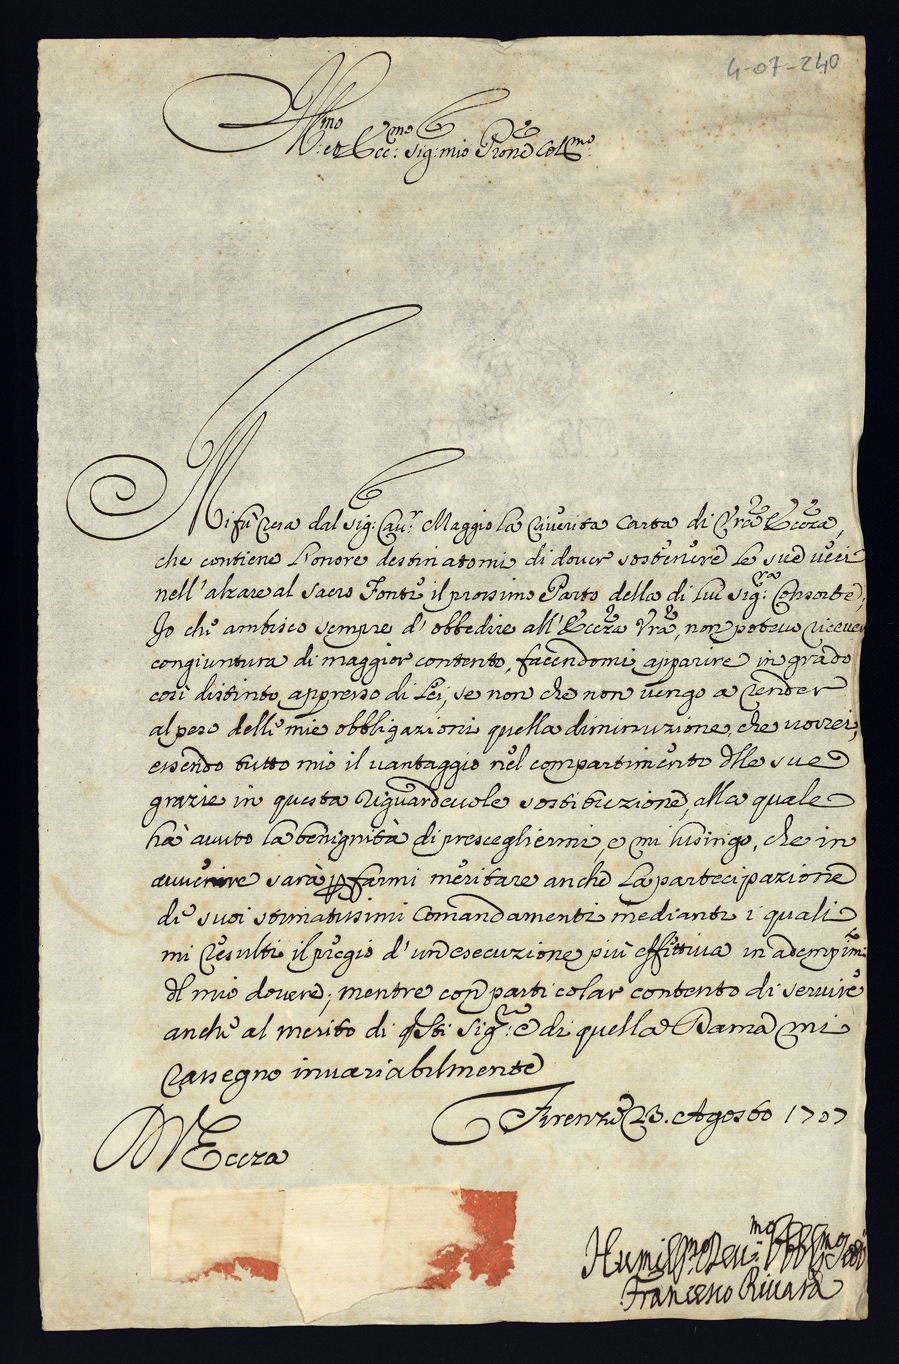 4-07-240
Ill.mo et Ecc.mo Sig: mio Prōne Coll.mo
Mi fù resa dal Sig: Cav.r Maggio la riverita Carta di Vrā Eccza,
che contiene l'onore destinatomi di dover sostenere le sue veci
nell'alzare al Sacro Fonte il prossimo Parto della di lui Sig.ra Consorte;
Io che ambisco sempre d'obbedire all'Eccza Vrā, non potevo ricever
congiuntura di maggior contento, facendomi apparire in grado
così distinto appresso di Lei, se non che non vengo a render
al peso delle mie obbligazioni quella diminuzione, che vorrei,
essendo tutto mio il vantaggio nel compartimento dlle sue
grazie in questa riguardevole sostituzione, alla quale
hà avuto la benignità di prescegliermi, e mi lusingo, che in
avvenire sarà p farmi meritare anche la partecipazione
de' suoi stimatissimi Comandamenti mediante i quali
mi resulti il pregio d'un'esecuzione più effettiva in adempim:
dl mio dovere; mentre con particolar contento di servire
anche al merito di qsti Sig.ri e di quella Dama mi
rassegno invariabilmente
Firenze 23. Agosto 1707
D V Eccza
Humiliss.mo Dev.mo Obblig.mo
Francesco